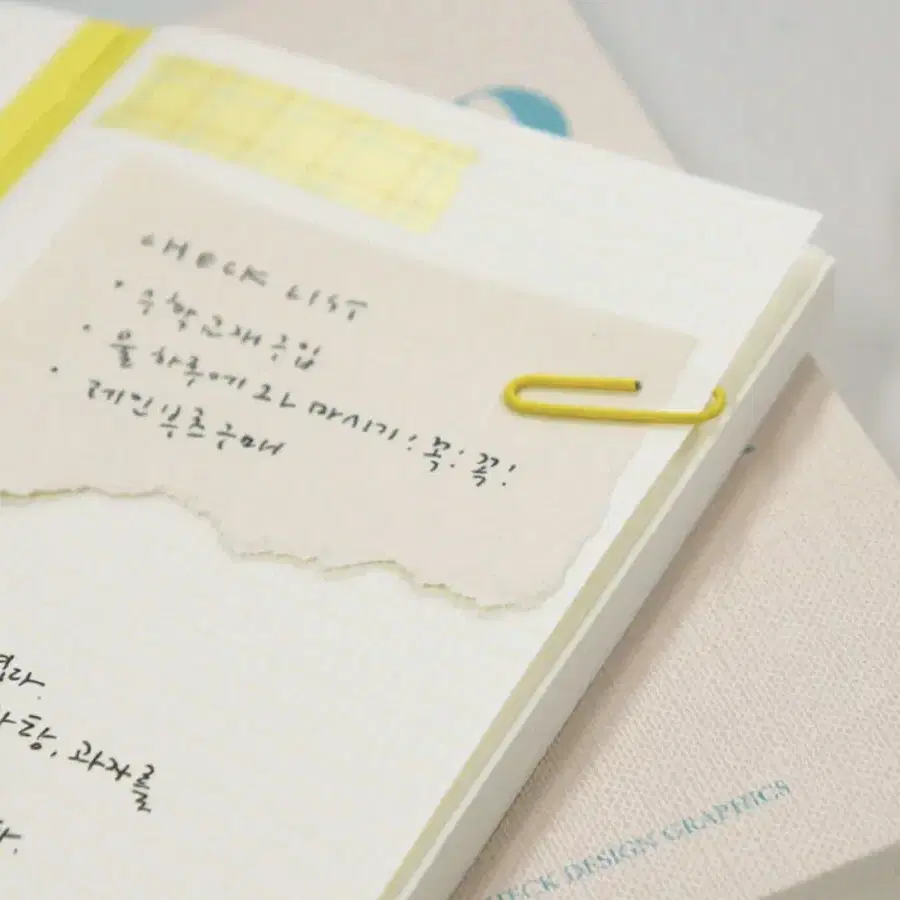 CHECK LIST
· 수학교재 구입
· 물 하루에 2L 마시기! 꼭! 꼭!
· 레인부츠 구매
탕, 과자를
CHECK DESIGN GRAPHICS